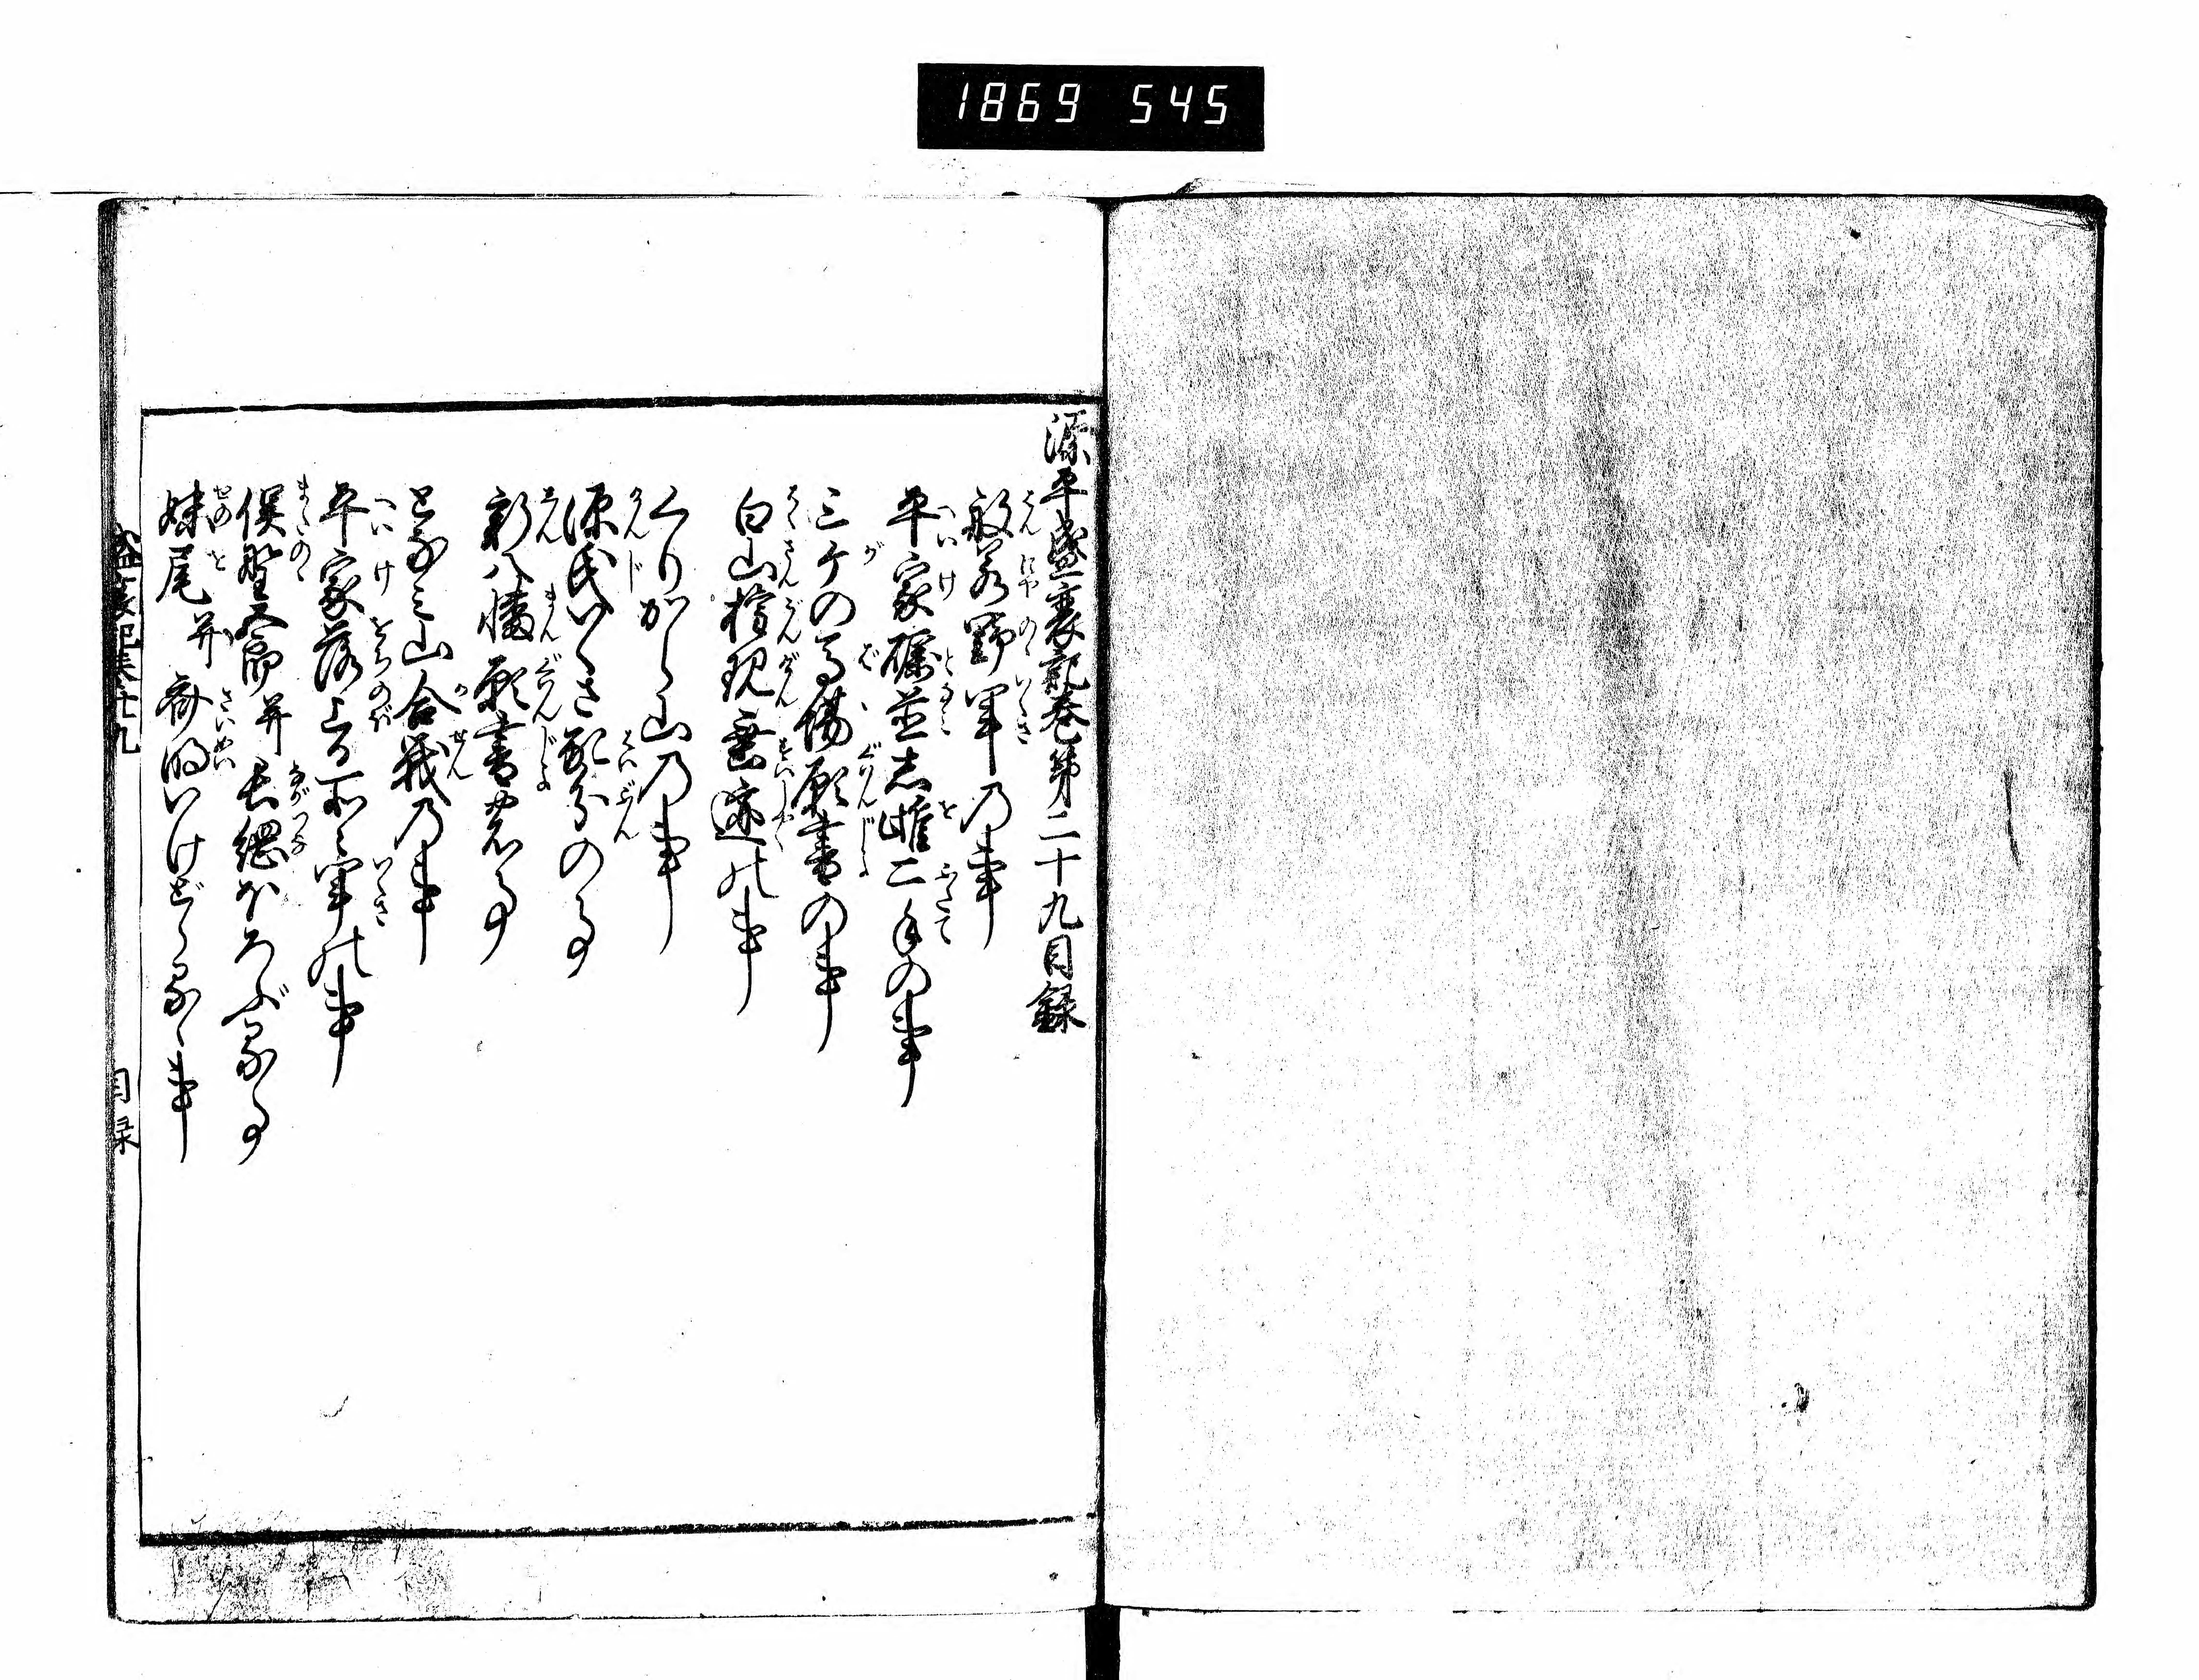 1869 545
源平盛衰記巻第二十九目録
般若野軍乃事
平家礪並志雄二手の事
三ケの馬場願書の事
白山権現垂迹の事
くりから山乃事
源氏いくさ配分の事
新八幡願書の事
となミ山合戦乃事
平家落上る所々軍の事
俣野五郎并長綱ほろぶる事
妹尾并斎明いけどらるゝ事
盛衰記巻廿九
目録